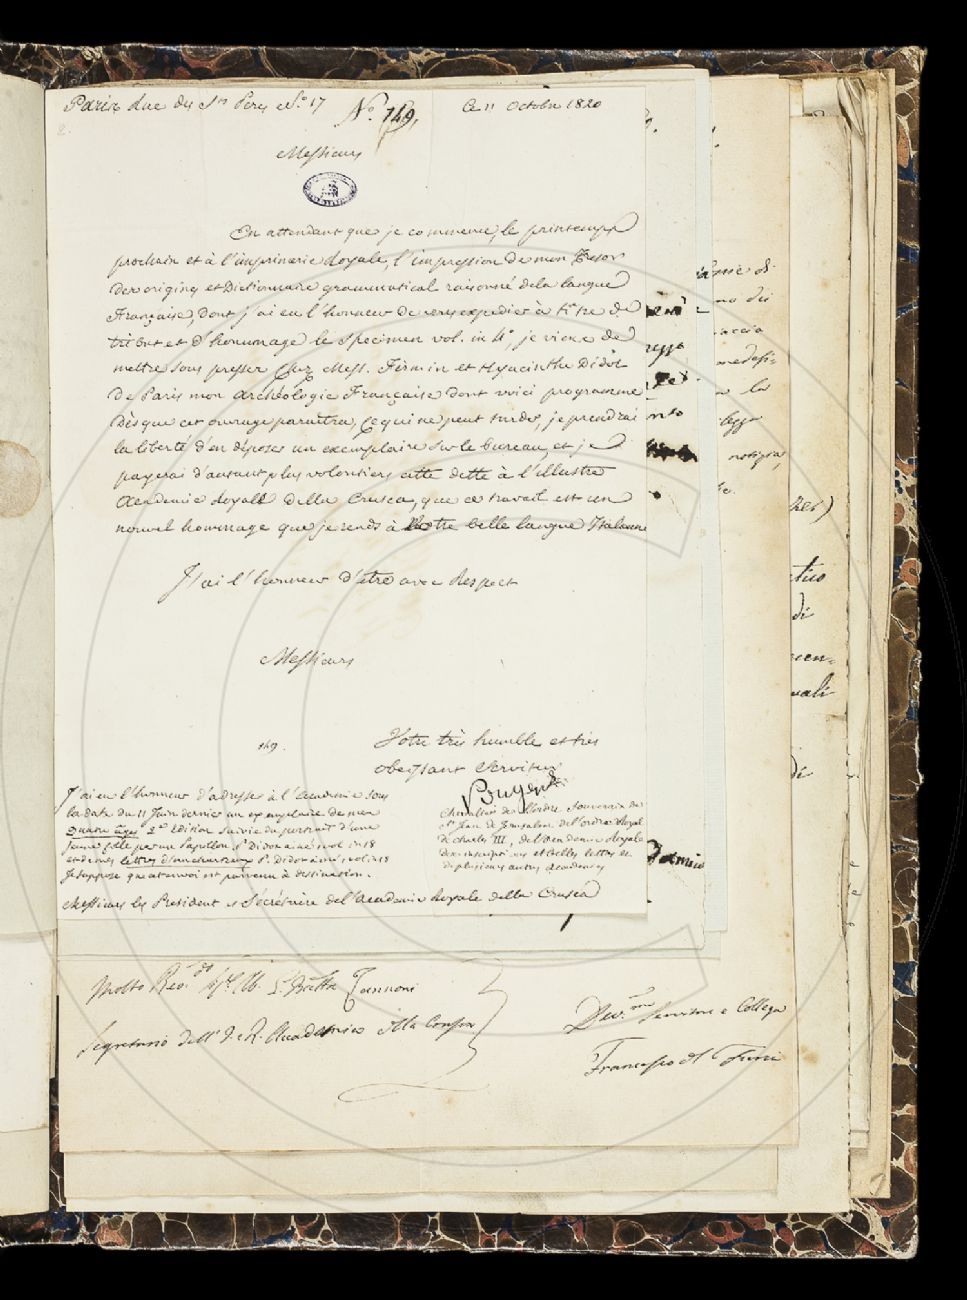 Paris Rue des Sts Peres No. 17
No. 149.
Ce 11 Octobre 1820
2.
Messieurs
En attendant que je commence, le printemps
prochain et à l'imprimerie Royale, l'impression de mon Tresor
des origines et Dictionnaire grammatical raisonné de la langue
Française, dont j'ai eu l'honneur de vous expedier à titre de
tribut et d'hommage le specimen vol. in 4°, je viens de
mettre sous presse chez Mess. Firmin et Hyacinthe Didot
de Paris mon Archéologie Française dont voici programme
Dès que cet ouvrage paraîtra, ce qui ne peut tarder, je prendrai
la liberté d'en déposer un exemplaire sur le bureau, et je
payerai d'autant plus volontiers cette dette à l'illustre
Academie Royale della Crusca, que ce travail est un
nouvel hommage que je rends à Votre belle langue Italienne
J'ai l'honneur d'être avec Respect
Messieurs
149.
Votre très humble et très
obeissant Serviteur
Pougens
Chevalier de l'ordre Souverain de
St Jean de Jerusalem, de l'ordre Royal
de Charles III, de l'Academie Royale
des inscriptions et belles lettres et
de plusieurs autres Academies
J'ai eu l'honneur d'adresser à l'Academie sous
la date du 11 Juin dernier un exemplaire de mes
quatre âges 2e Edition suivie du portrait d'une
jeune fille par un Papillon, P. Didot ainé 1 vol. in 18
et de mes lettres d'un chartreux P. Didot ainé 1 vol. in 18
Je suppose que cet envoi est parvenu à destination.
Messieurs les President et Sécrétaire de l'Academie Royale della Crusca
Molto Revdo Sigr Ab. G. Batta Zannoni
Segretario dell' I. e R. Accademia della Crusca
Devmo Servitore e Collega
Francesco del Furia